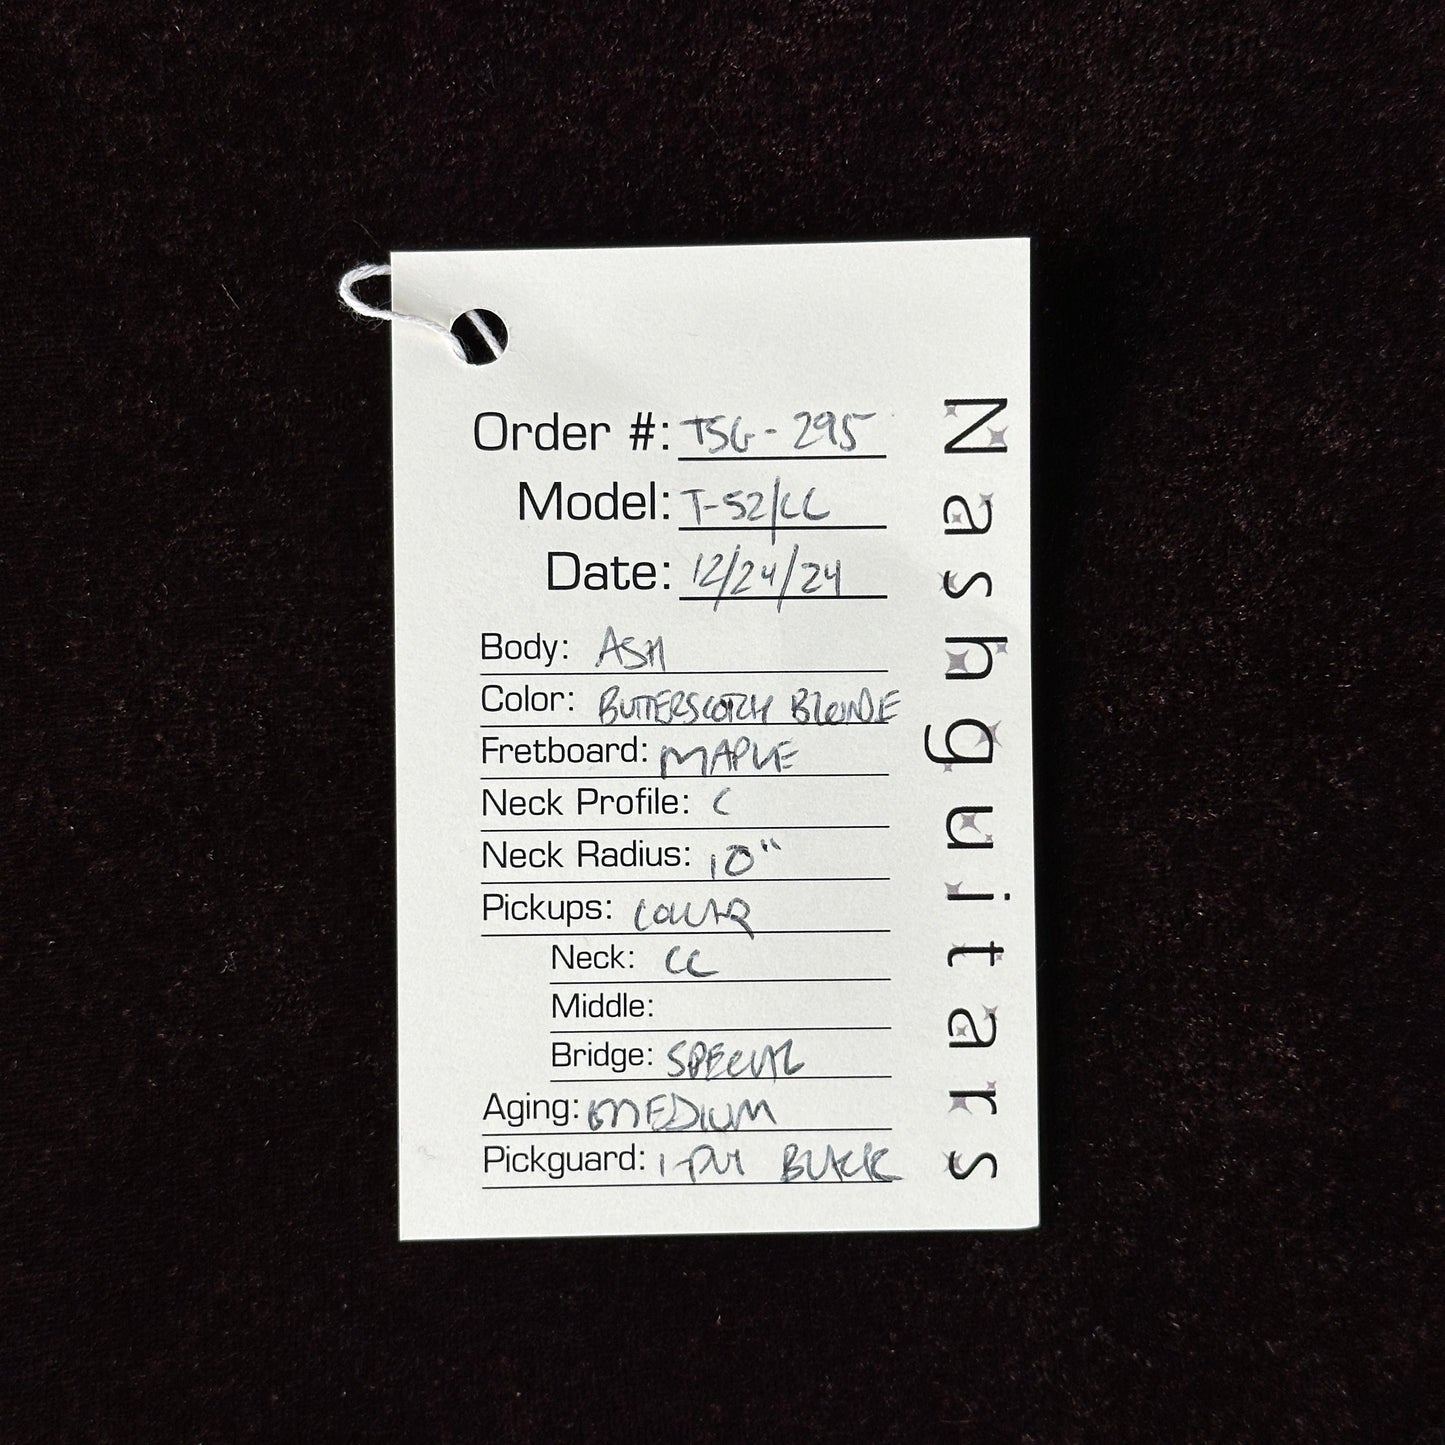 Order #: TSG-295
Model: T-52/CC
Date: 12/24/24
Body: ASH
Color: BUTTERSCOTCH BLONDE
Fretboard: MAPLE
Neck Profile: C
Neck Radius: 10"
Pickups: LOLLAR
Neck: CC
Middle:
Bridge: SPECIAL
Aging: MEDIUM
Pickguard: 1-PLY BLACK
Nashguitars